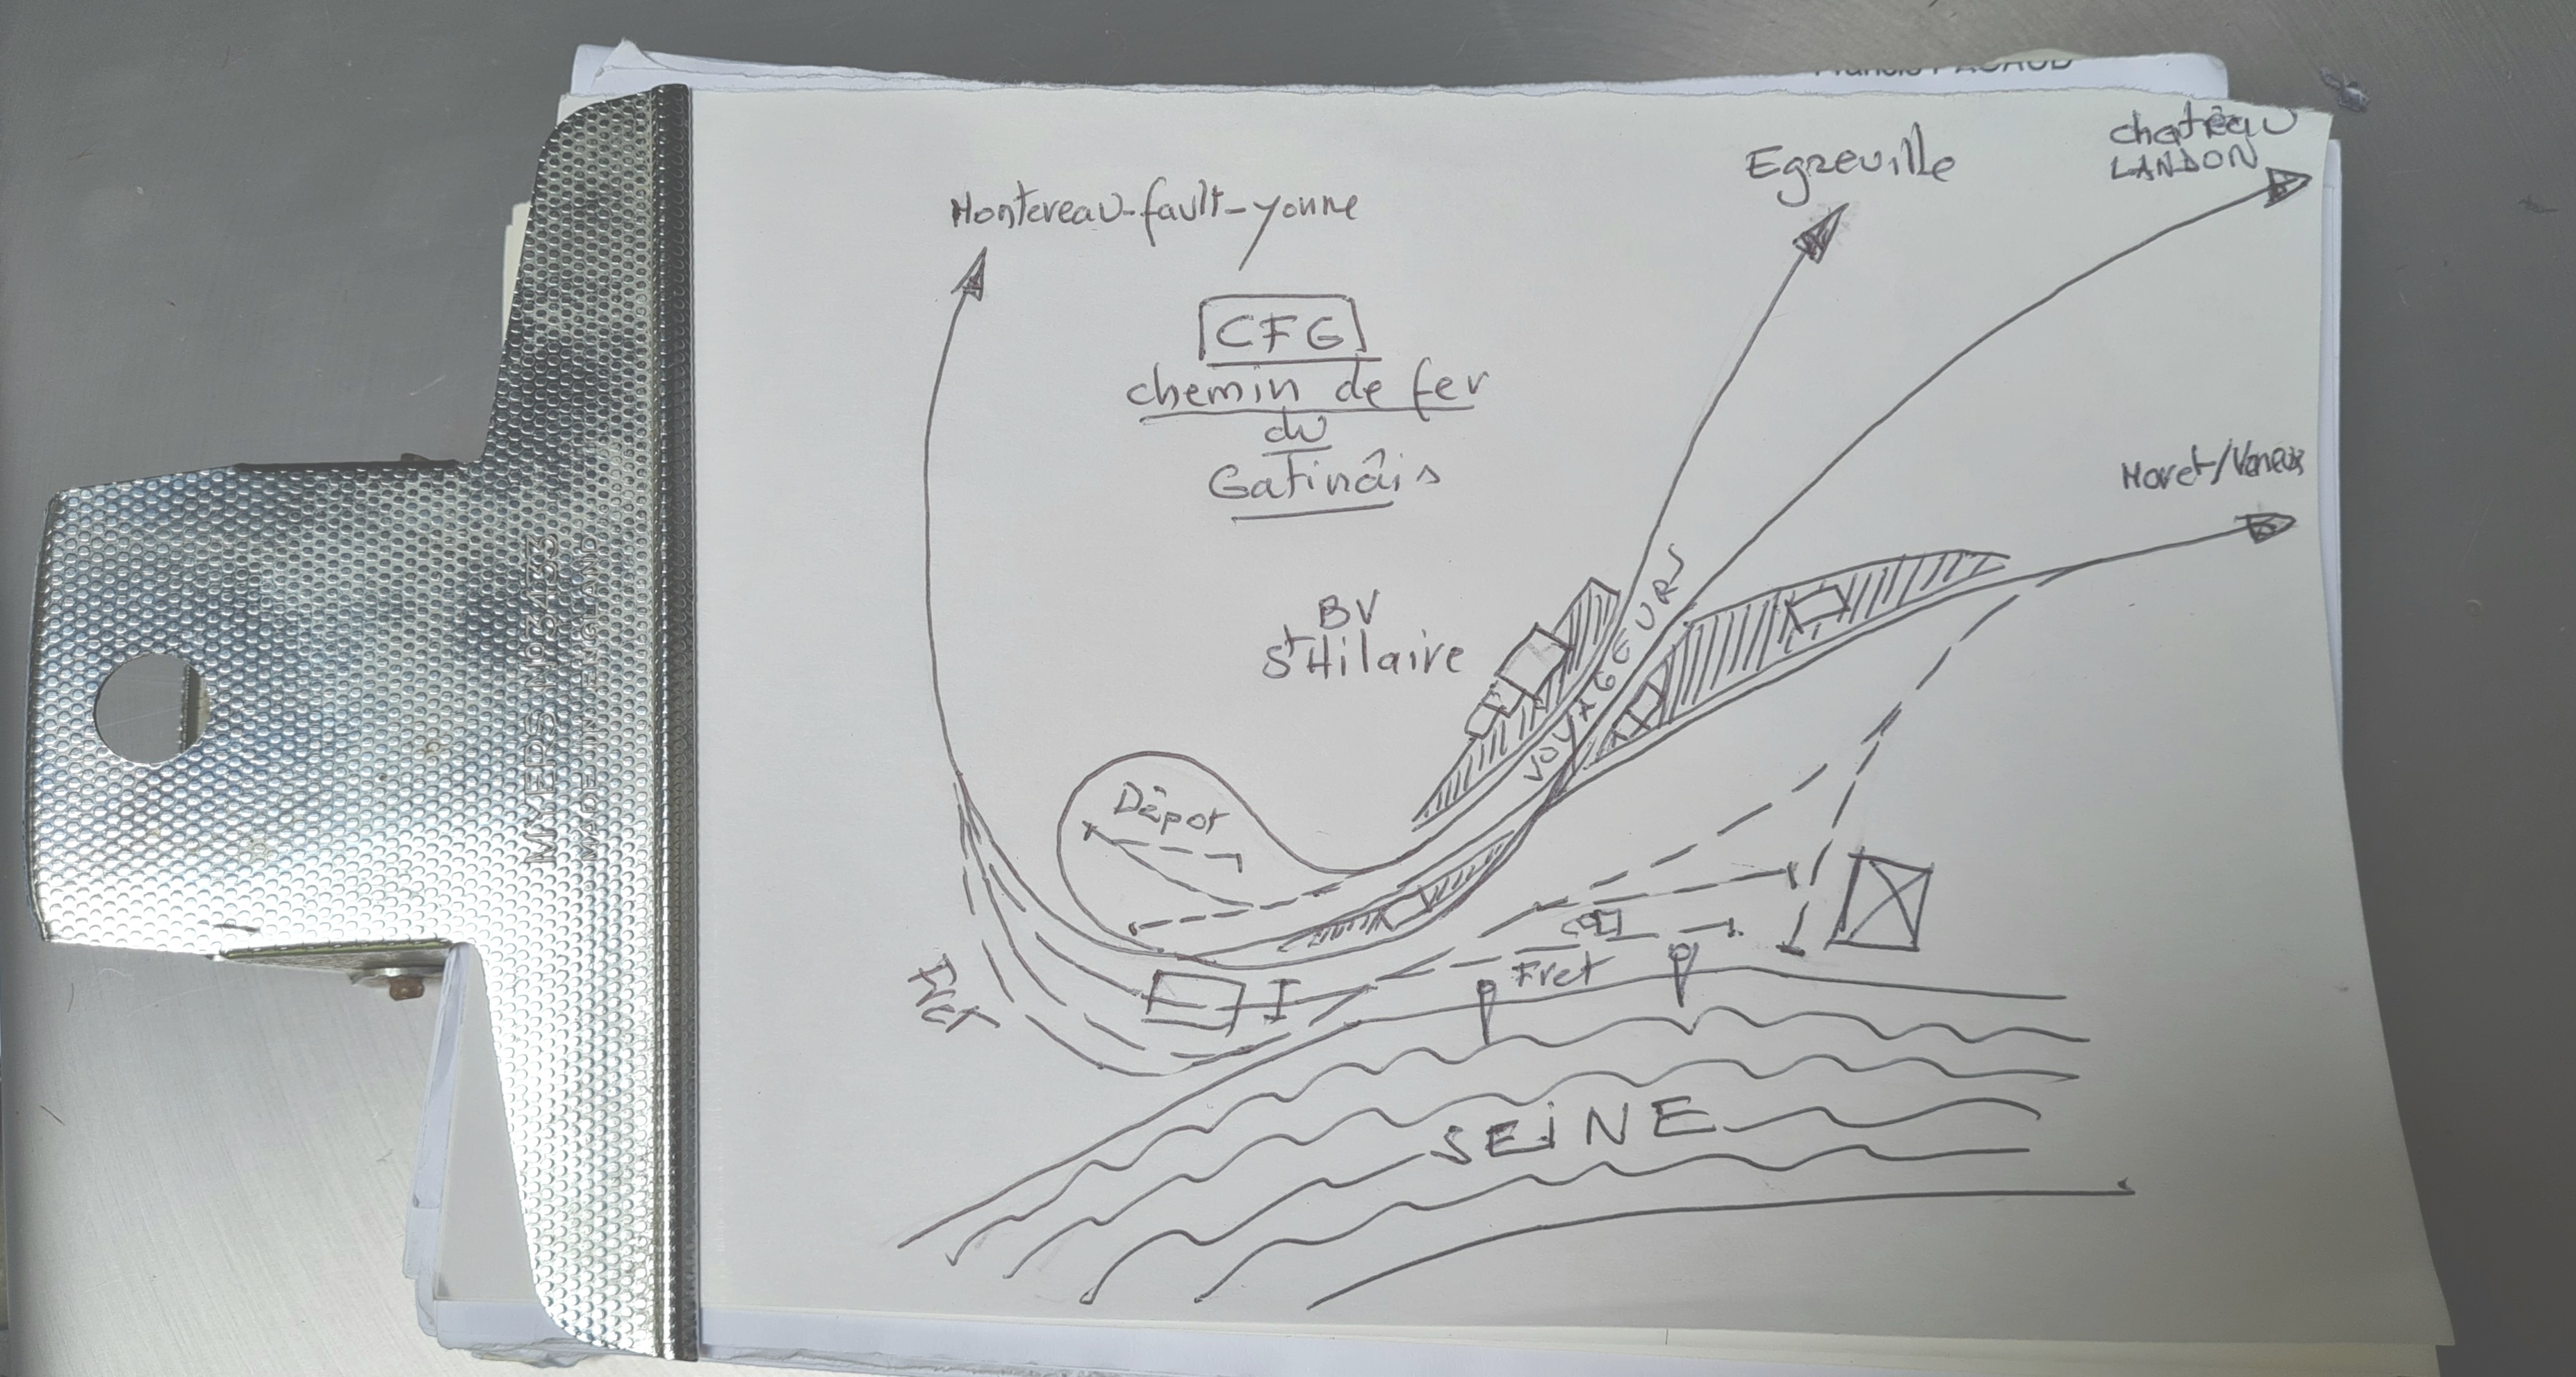 Montereau-fault-yonne
Egreville
chateau
LANDON
CFG
chemin de fer
du
Gatinâis
Moret/Veneux
BV
St Hilaire
VOYAGEURS
Dépot
Fret
Fret
SEiNE
MYERS No 3433
MADE IN ENGLAND